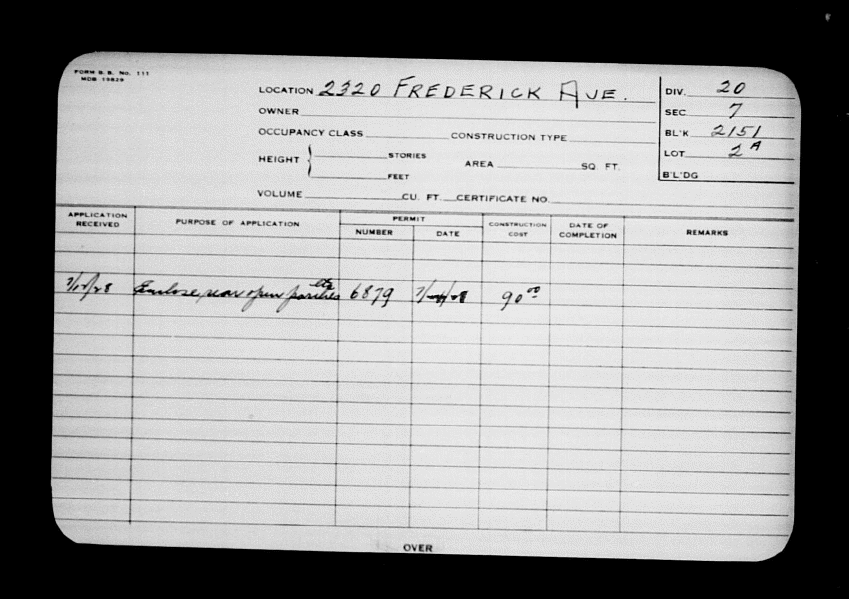 FORM B. B. No. 111
MDB 19829
LOCATION 2320 FREDERICK AVE.
OWNER
OCCUPANCY CLASS CONSTRUCTION TYPE
HEIGHT { STORIES AREA SQ. FT.
FEET
VOLUME CU. FT. CERTIFICATE NO.
DIV. 20
SEC 7
BL'K 2151
LOT 2A
B'L'DG
APPLICATION RECEIVED PURPOSE OF APPLICATION PERMIT NUMBER DATE CONSTRUCTION COST DATE OF COMPLETION REMARKS
Enclose rear open porches etc 6879 90 00
OVER